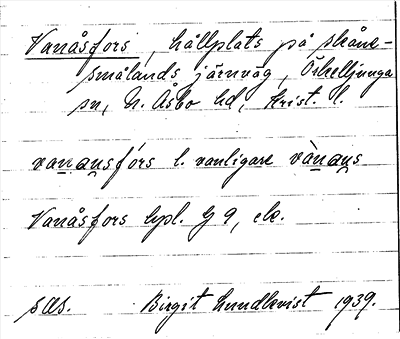 Vanåsfors, hållplats på skåne-
smålands järnväg, Örkelljunga
sn, N. Åsbo hd, Krist. l.
vanansfórs l. vanligare vànans
Vanåsfors hpl. G 9, ek.
sæs. Birgit Lundkvist 1939.